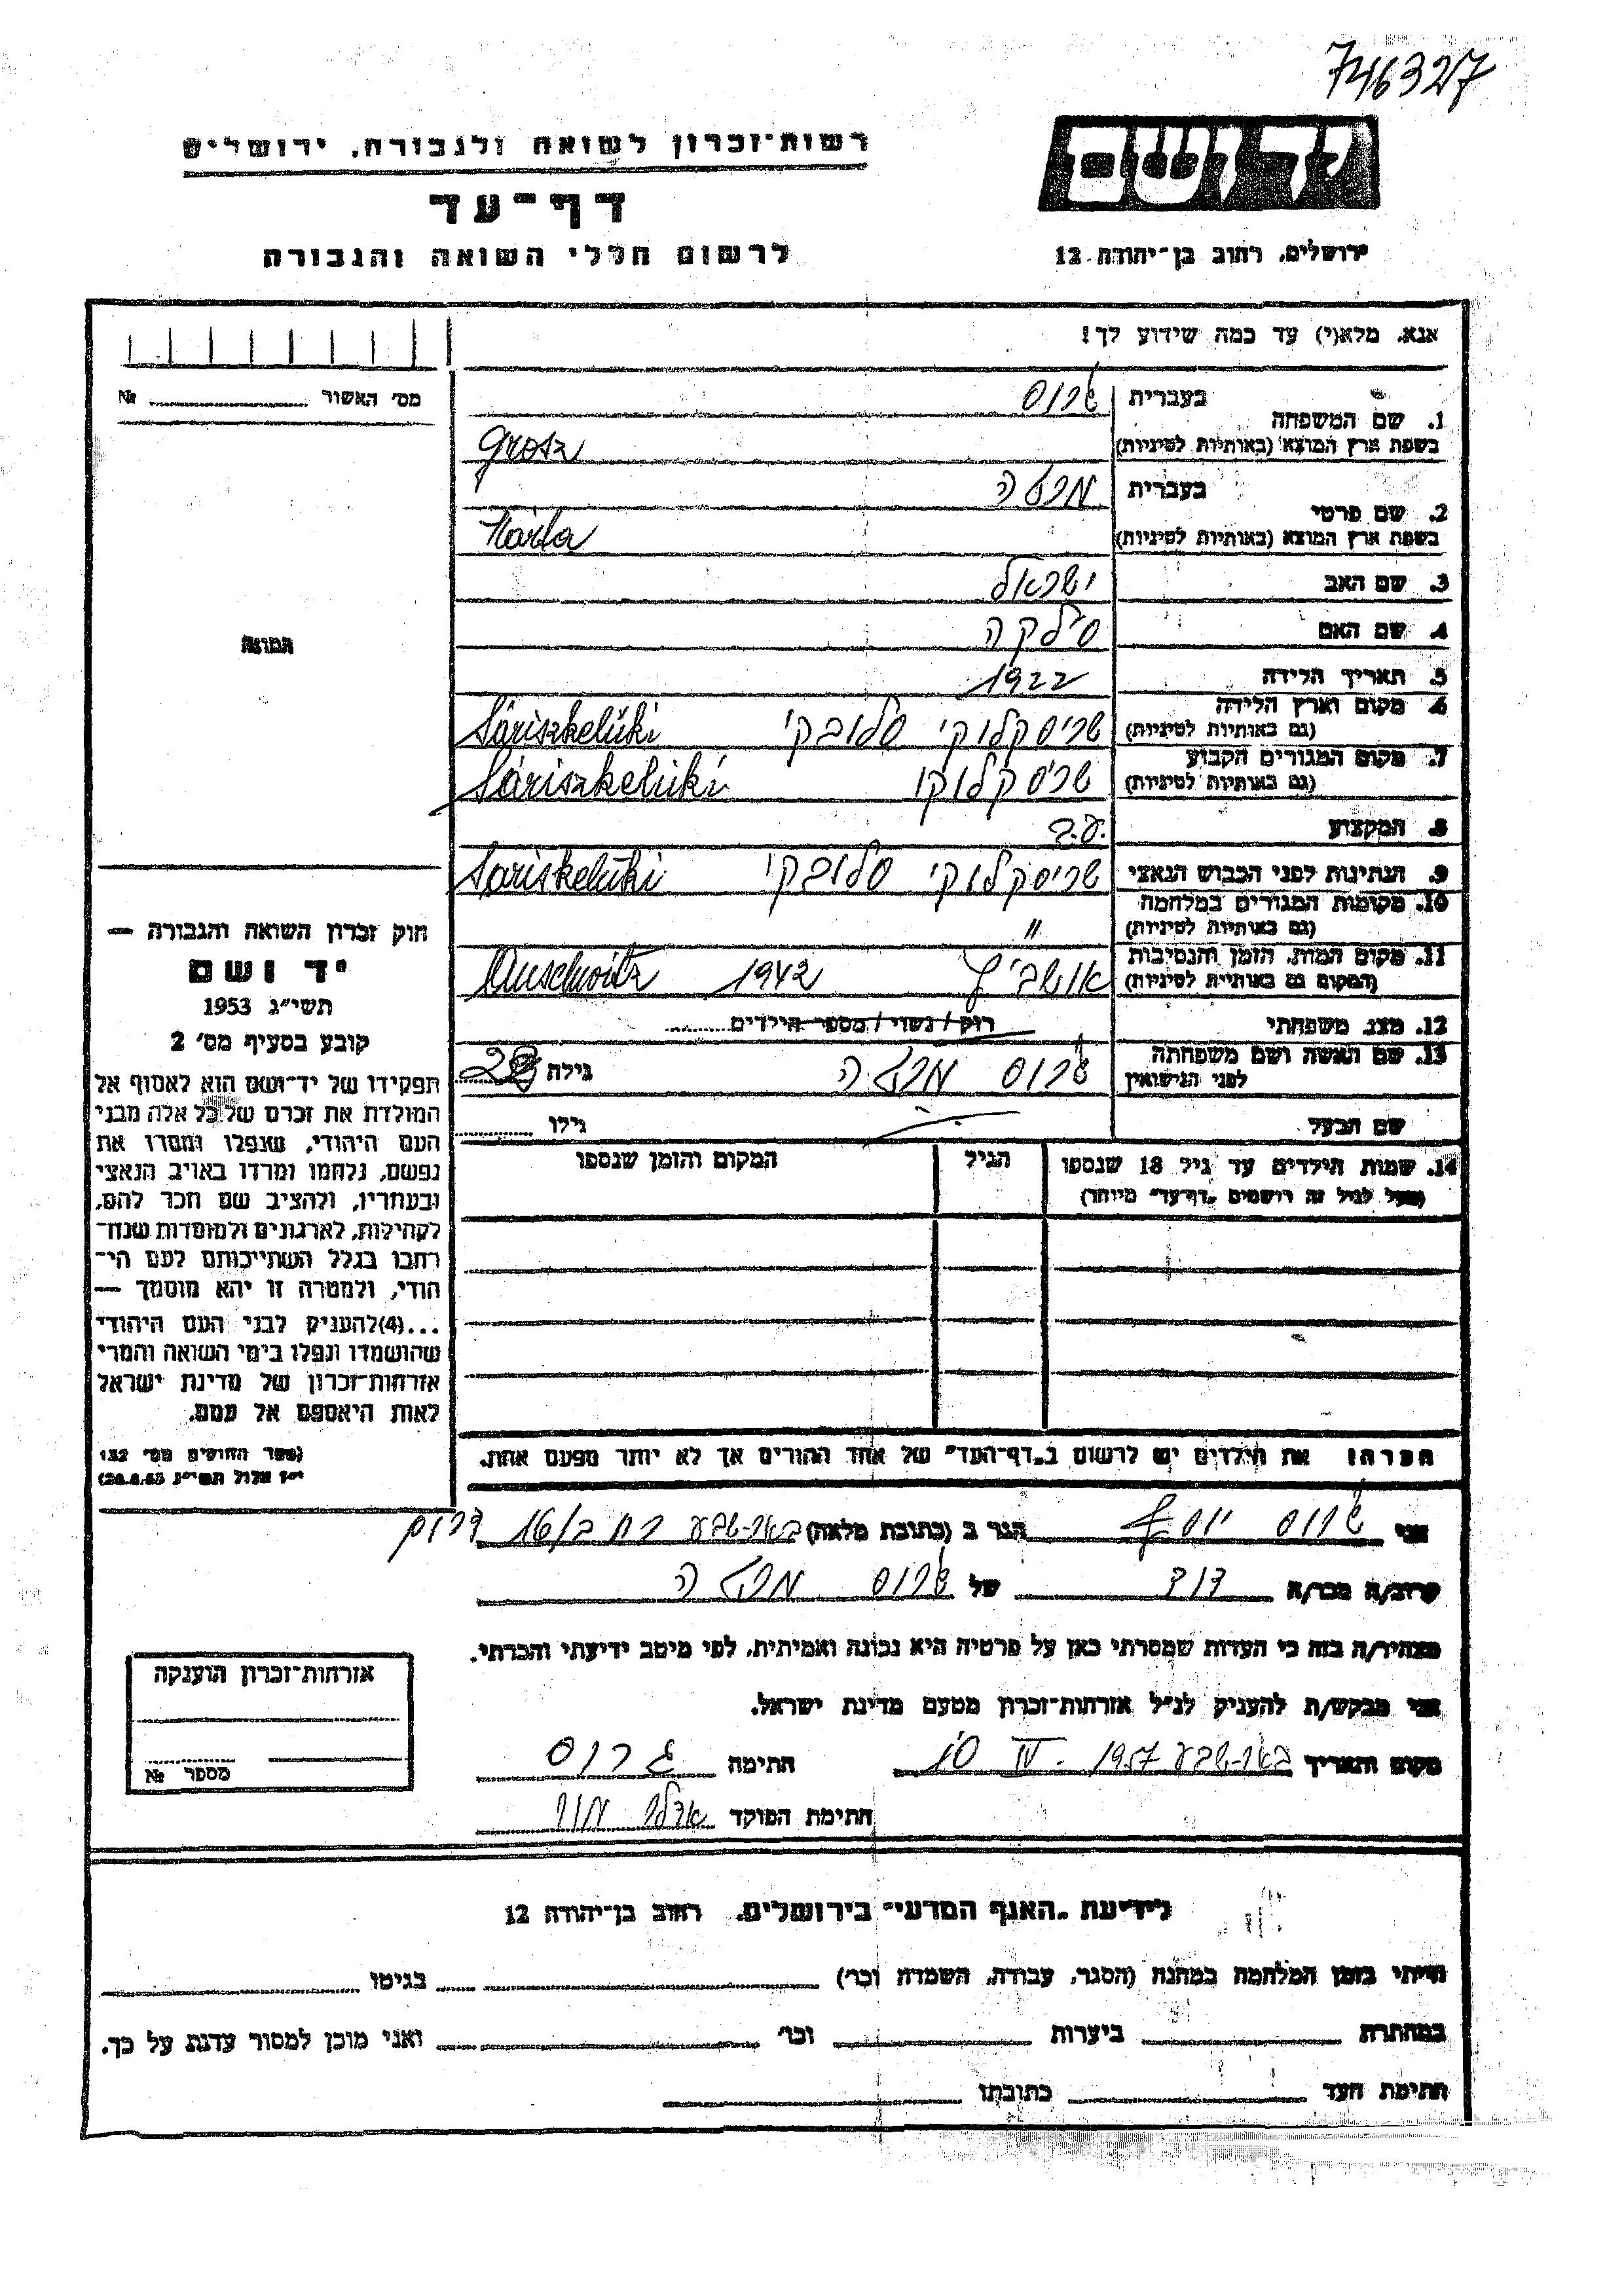 746327
יד ושם
רשות־זכרון לשואה ולגבורה, ירושלים
דף־עד
לרשום חללי השואה והגבורה
ירושלים, רחוב בן־יהודה 12
אנא, מלא(י) עד כמה שידוע לך!
מס׳ האשור № 
1. שם המשפחה בעברית גרוס
בשפת ארץ המוצא (באותיות לטיניות) Grosz
2. שם פרטי בעברית
בשפת ארץ המוצא (באותיות לטיניות)
3. שם האב ישראל
4. שם האם סילקה
5. תאריך הלידה 1922
6. מקום וארץ הלידה
(גם באותיות לטיניות) שריסקלוקי סלובקי Sáriszkelúki
7. מקום המגורים הקבוע
(גם באותיות לטיניות) שריסקלוקי Sáriszkelúki
8. המקצוע ע.ב.
9. הנתינות לפני הכבוש הנאצי שריסקלוקי סלובקי Sariskelúki
10. מקומות המגורים במלחמה
(גם באותיות לטיניות) "
11. מקום המות, הזמן והנסיבות
(המקום גם באותיות לטיניות) אושביץ 1942 Auschwitz
12. מצב משפחתי רוק / נשוי / מספר הילדים
13. שם האשה ושם משפחתה
לפני הנישואין גרוס גילה
שם הבעל גילו
14. שמות הילדים עד גיל 18 שנספו הגיל המקום והזמן שנספו
(מעל לגיל זה רושמים „דף־עד״ מיוחד)
הערה: את הילדים יש לרשום ב„דף־העד״ של אחד ההורים אך לא יותר מפעם אחת.
תמונה
חוק זכרון השואה והגבורה —
יד ושם
תשי״ג 1953
קובע בסעיף מס׳ 2
תפקידו של יד־ושם הוא לאסוף אל
המולדת את זכרם של כל אלה מבני
העם היהודי, שנפלו ומסרו את
נפשם, נלחמו ומרדו באויב הנאצי
ובעוזריו, ולהציב שם וזכר להם,
לקהילות, לארגונים ולמוסדות שנח־
רבו בגלל השתייכותם לעם הי־
הודי, ולמטרה זו יהא מוסמך —
...(4)להעניק לבני העם היהודי
שהושמדו ונפלו בימי השואה והמרי
אזרחות־זכרון של מדינת ישראל
לאות היאספם אל עמם.
(ספר החוקים מס׳ 132
י״ז אלול תשי״ג 28.8.53)
אני גרוס יוסף הגר ב (כתובת מלאה) באר-שבע רח ב/16 דרום
קרוב/ה מכר/ה דוד של גרוס
מצהיר/ה בזה כי העדות שמסרתי כאן על פרטיה היא נכונה ואמיתית, לפי מיטב ידיעתי והכרתי.
אני מבקש/ת להעניק לנ״ל אזרחות־זכרון מטעם מדינת ישראל.
מקום ותאריך באר-שבע 1957 חתימה גרוס
חתימת הפוקד
אזרחות־זכרון הוענקה
מספר №
לידיעת „האגף המדעי״ בירושלים, רחוב בן־יהודה 12
הייתי בזמן המלחמה במחנה (הסגר, עבודה, השמדה וכו׳) בגיטו
במחתרת ביערות וכו׳ ואני מוכן למסור עדות על כך.
חתימת העד כתובתו